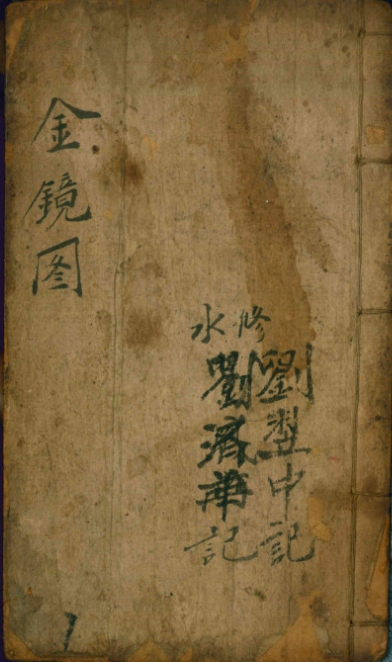 修水
劉型中記
劉濟華記
金鏡图
1